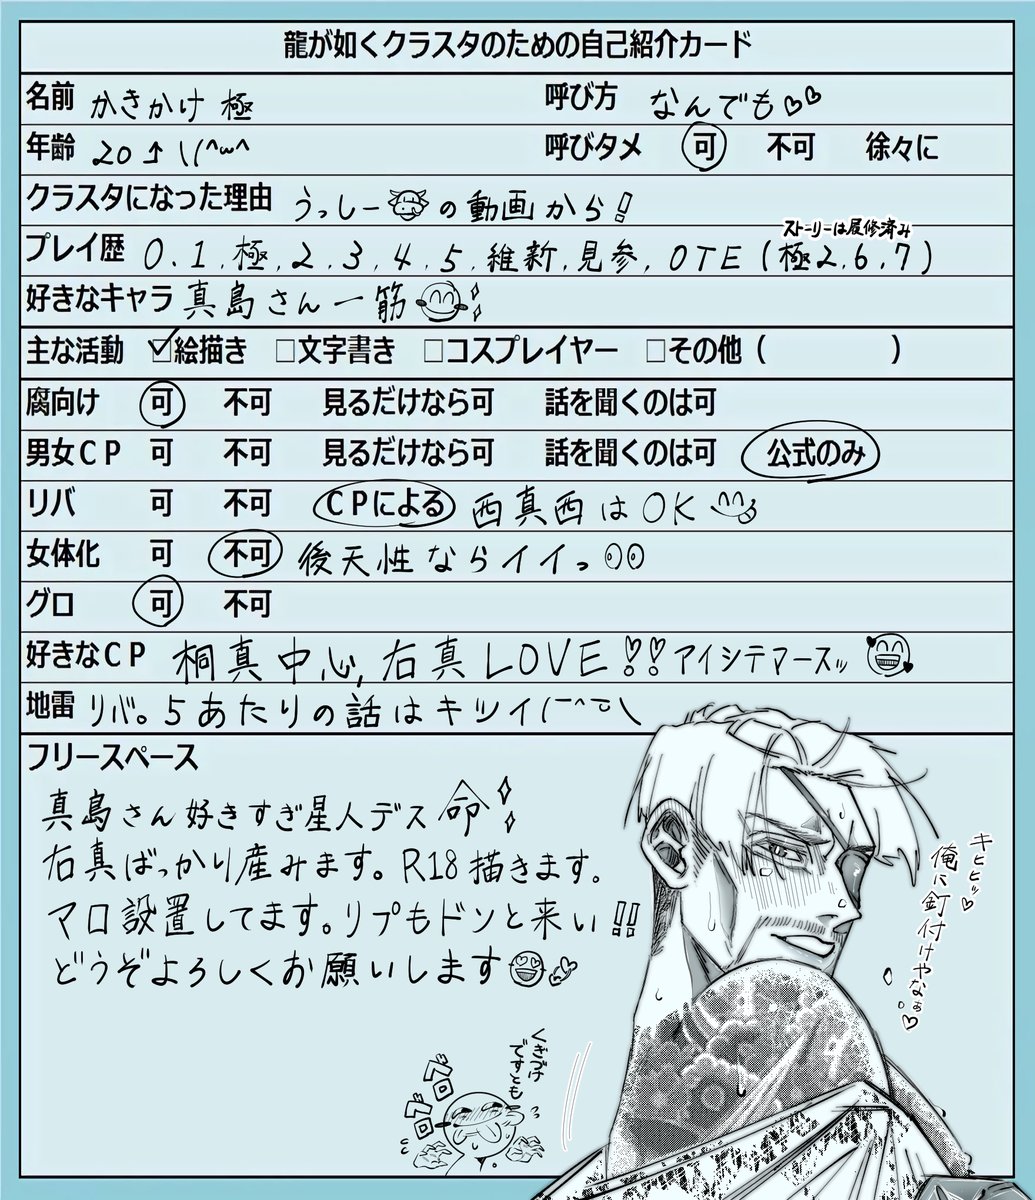 龍が如くクラスタのための自己紹介カード
名前 かきかけ 極 呼び方 なんでも♡♡
年齢 20↑\(^ω^ 呼びタメ 可 不可 徐々に
クラスタになった理由 うっしーの動画から!
ストーリーは履修済み
プレイ歴 0.1.極.2.3.4.5.維新.見参.OTE(極2.6.7)
好きなキャラ 真島さん一筋
主な活動 ☑絵描き □文字書き □コスプレイヤー □その他( )
腐向け 可 不可 見るだけなら可 話を聞くのは可
男女CP 可 不可 見るだけなら可 話を聞くのは可 公式のみ
リバ 可 不可 CPによる 西真西はOK
女体化 可 不可 後天性ならイイっ
グロ 可 不可
好きなCP 桐真中心,右真LOVE!!アイシテマースッ
地雷 リバ。5あたりの話はキツイ
フリースペース
真島さん好きすぎ星人デス命
右真ばっかり産みます。R18描きます.
マロ設置してます。リプもドンと来い!!
どうぞよろしくお願いします
キヒヒッ♡
俺に釘付けやなぁ♡
くぎづけ
ですとも
ペロ
ペロ